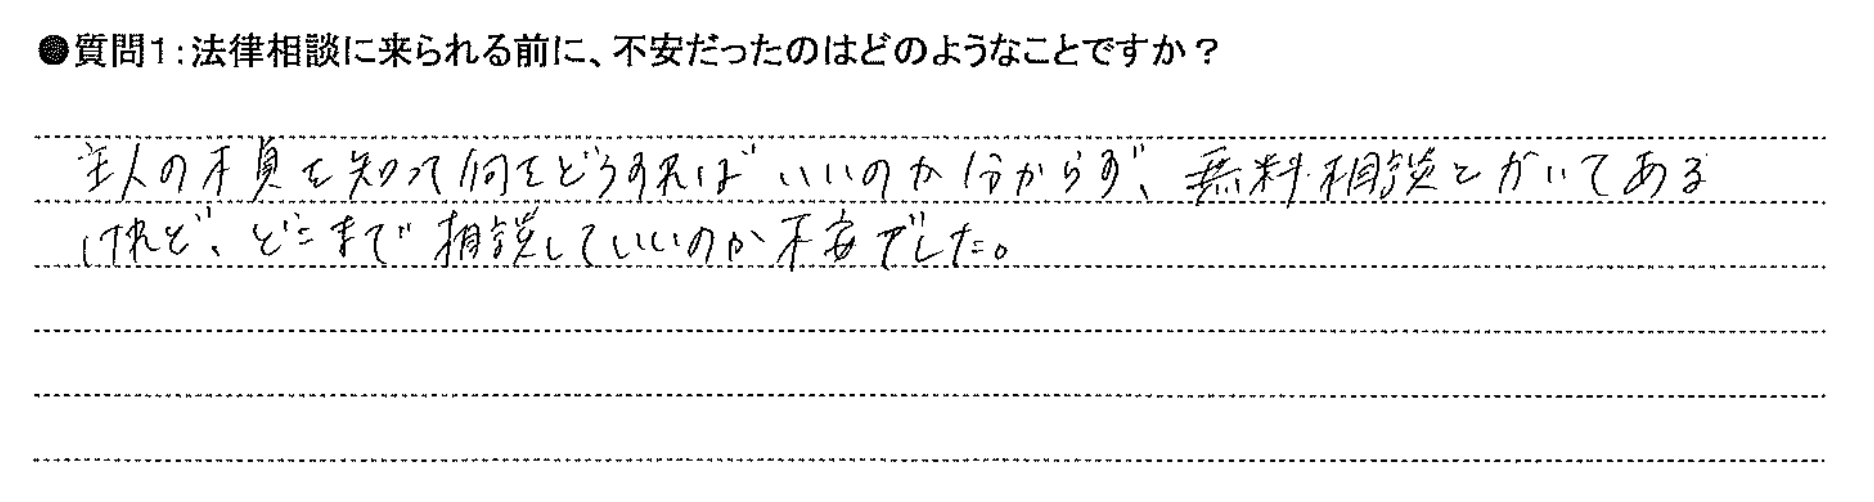 ●質問1:法律相談に来られる前に、不安だったのはどのようなことですか?
主人の不貞を知って何をどうすればいいのか分からず、無料相談とかいてある
けれど、どこまで相談していいのか不安でした。